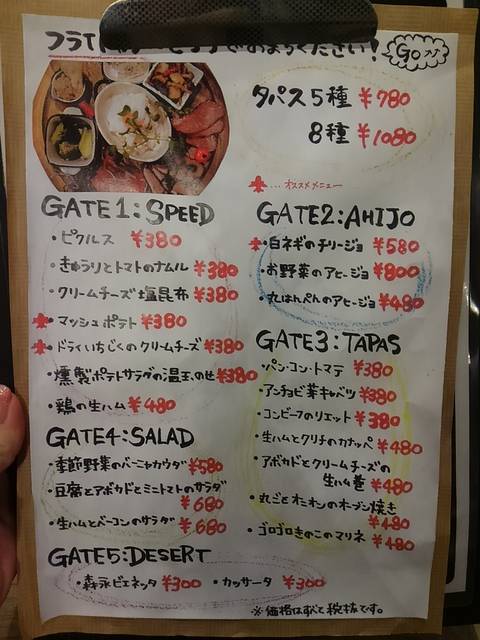 フライト
ください！
GO
タパス5種 ¥780
8種 ¥1080
…オススメメニュー
GATE1:SPEED
・ピクルス ¥380
・きゅうりとトマトのナムル ¥380
・クリームチーズ塩昆布 ¥380
・マッシュポテト ¥380
・ドライいちじくのクリームチーズ ¥380
・燻製ポテトサラダの温玉のせ ¥380
・鶏の生ハム ¥480
GATE2:AHIJO
・白ネギのチリージョ ¥580
・お野菜のアヒージョ ¥800
・丸はんぺんのアヒージョ ¥480
GATE3:TAPAS
・パン・コン・トマテ ¥380
・アンチョビ芽キャベツ ¥380
・コンビーフのリエット ¥380
・生ハムとクリチのカナッペ ¥480
・アボカドとクリームチーズの
生ハム巻 ¥480
・丸ごとオニオンのオーブン焼き
¥480
・ゴロゴロきのこのマリネ ¥480
GATE4:SALAD
・季節野菜のバーニャカウダ ¥580
・豆腐とアボカドとミニトマトのサラダ
¥680
・生ハムとベーコンのサラダ ¥680
GATE5:DESERT
・森永ビエネッタ ¥300 ・カッサータ ¥300
※価格はすべて税抜です。